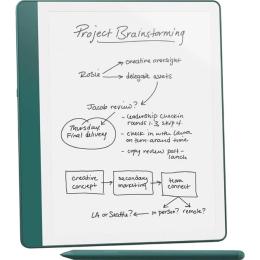 Project Brainstorming
creative oversight
Rosie
delegate assets
Jacob review?
- leadership checkin
rounds 1, 3, step 4
- check in with Laura
on turn-around time
- copy review post-
launch
Thursday
Final delivery
creative
concept
secondary
marketing
team
connect
LA or Seattle?
in person?
remote?